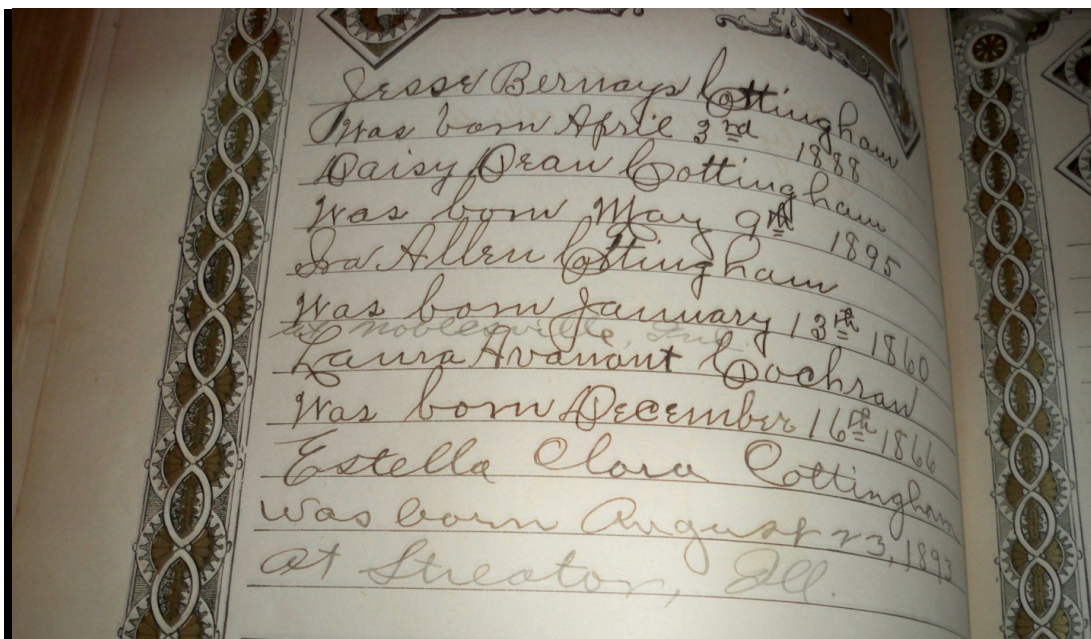 Jesse Bernays Cottingham
Was born April 3rd 1888
Daisy Dean Cottingham
Was born May 9th 1895
Ira Allen Cottingham
Was born January 13th 1860
at Noblesville, Ind.
Laura Avanant Cochran
Was born December 16th 1866
Estella Clara Cottingham
was born August 23, 1893
at Streator, Ill.